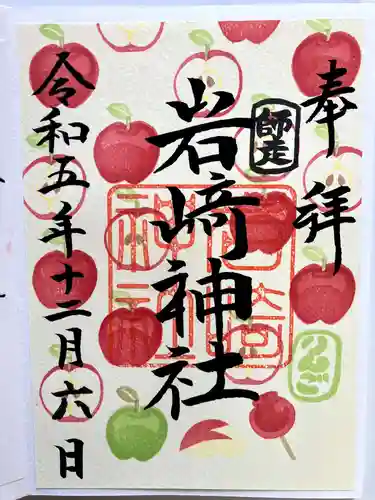 奉拝
師走
岩﨑神社
岩崎神社
りんご
令和五年十二月六日